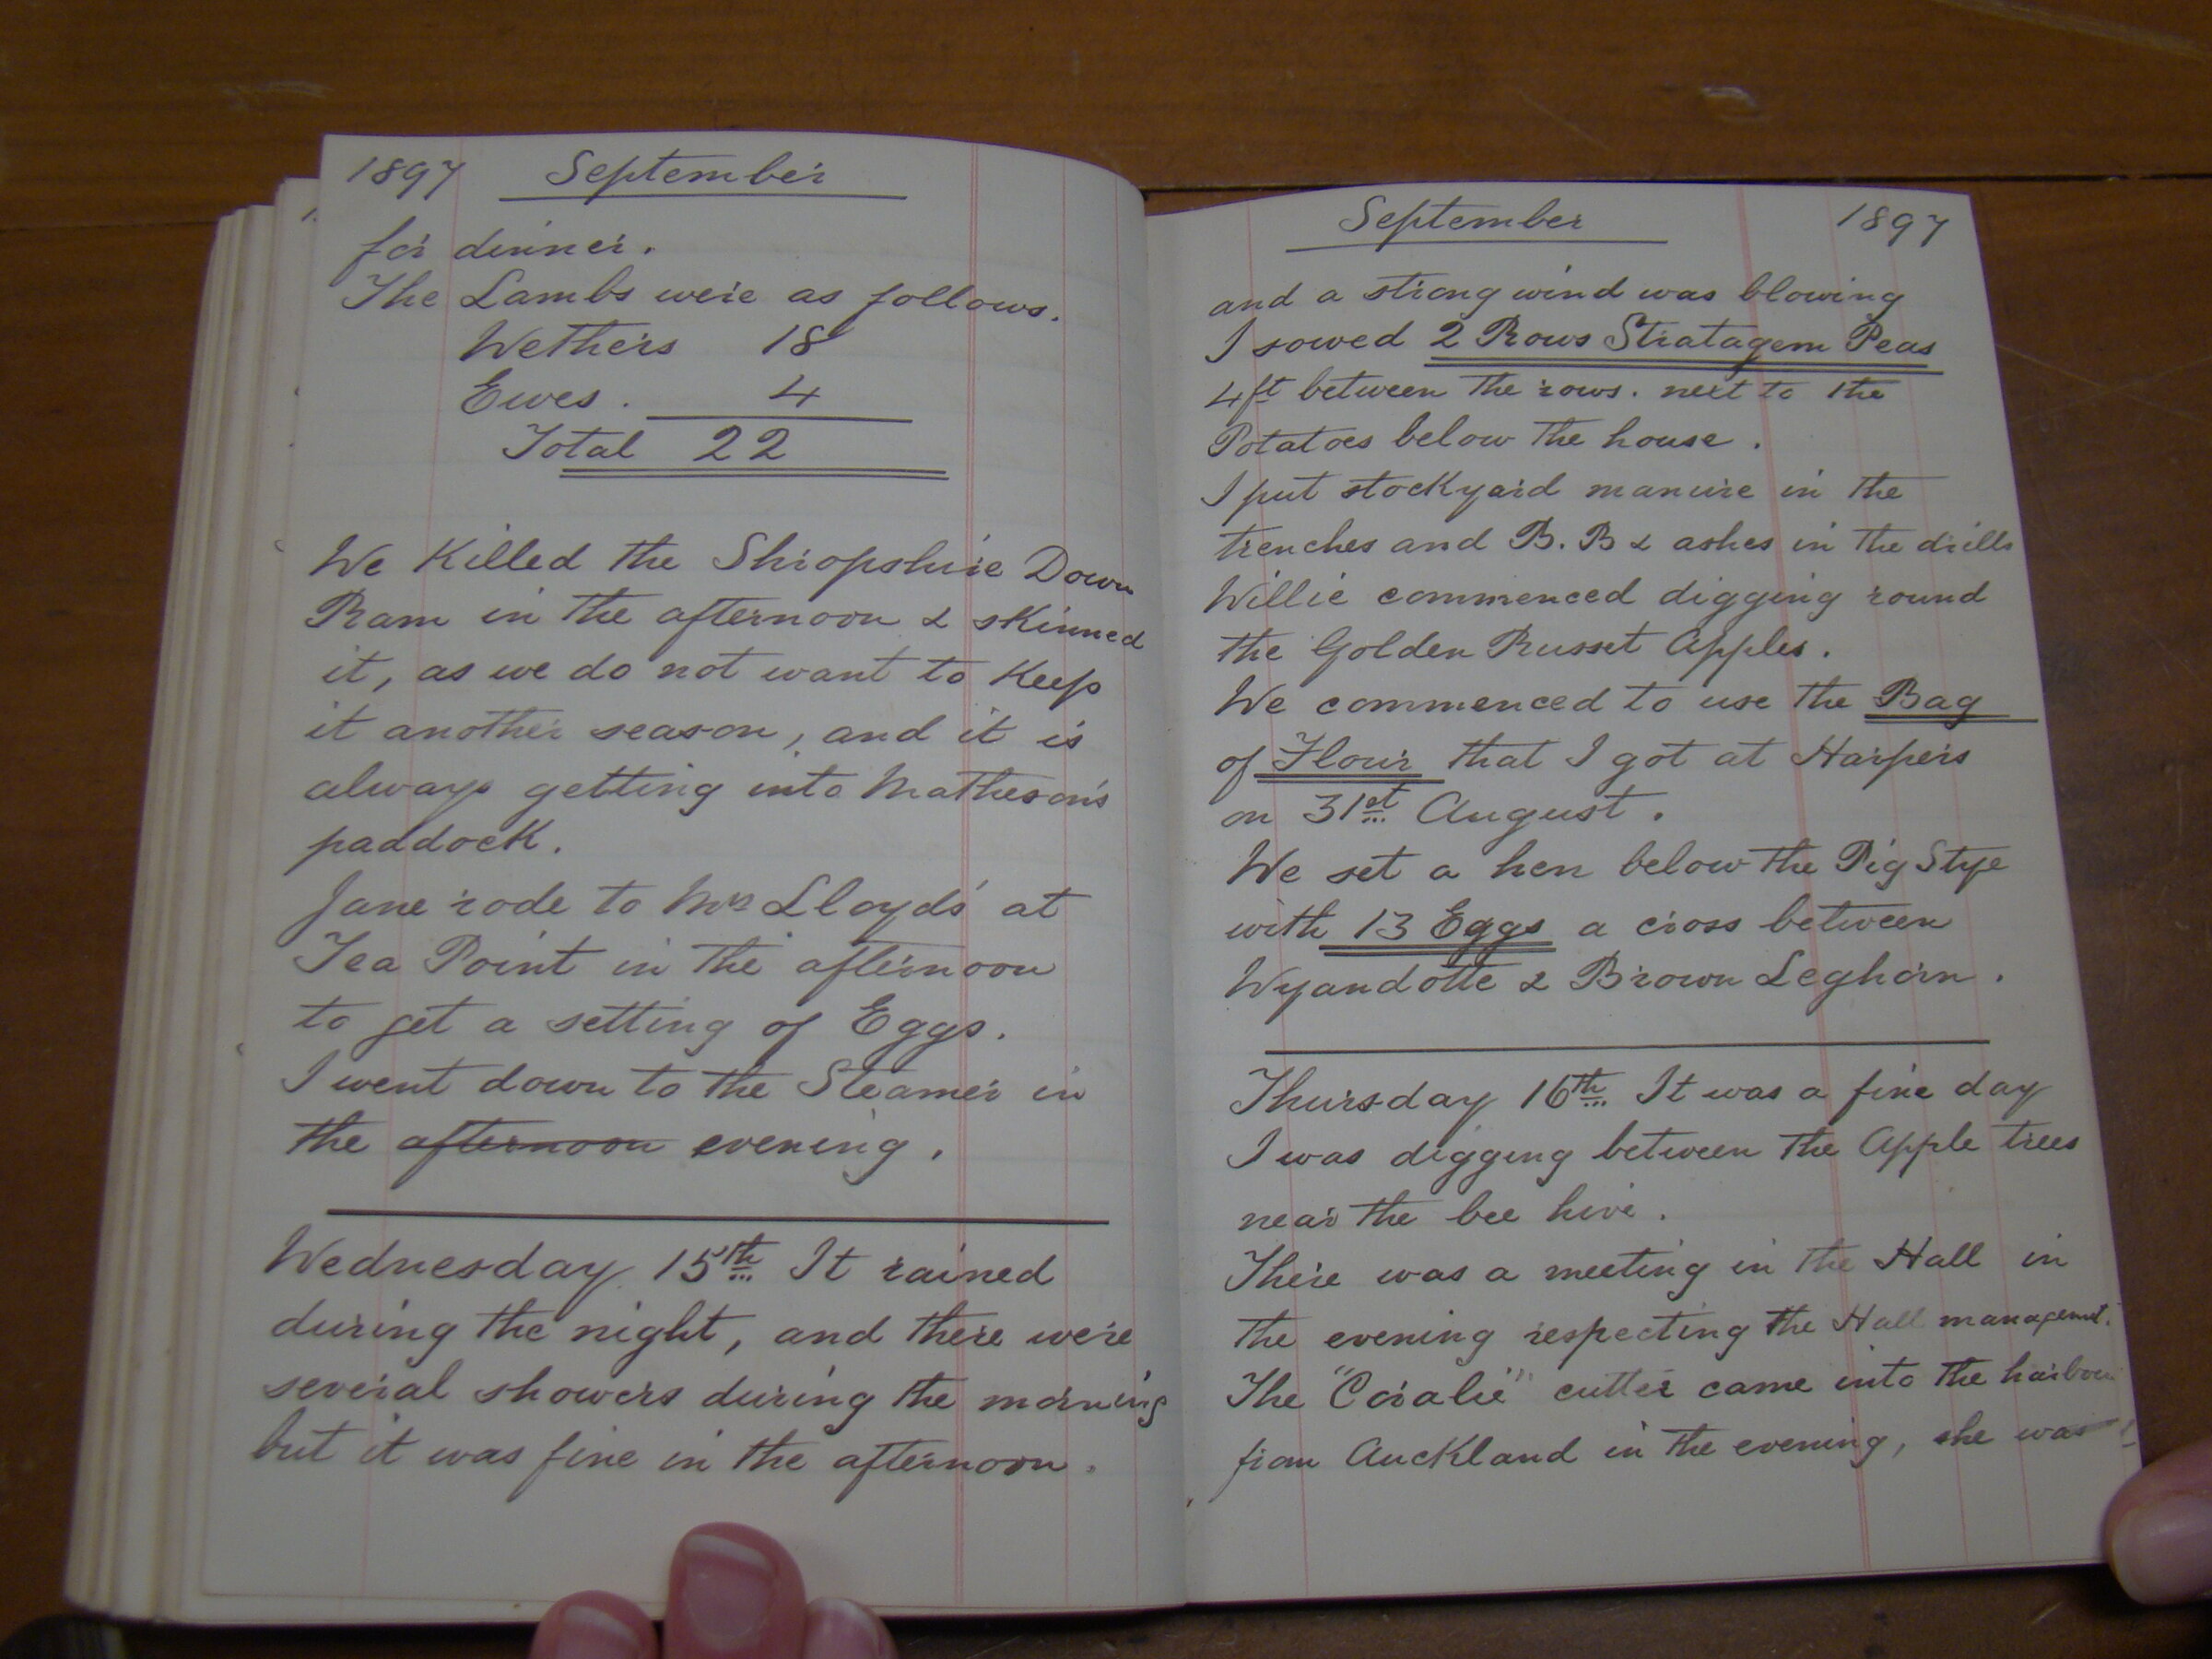 1897 September
for dinner.
The Lambs were as follows.
Wethers 18
Ewes. 4
Total 22
We Killed the Shropshire Down
Ram in the afternoon & skinned
it, as we do not want to Keep
it another season, and it is
always getting into Matheson's
paddock.
Jane rode to Mrs Lloyds' at
Tea Point in the afternoon
to get a setting of Eggs.
I went down to the Steamer in
the afternoon evening.
Wednesday 15th It rained
during the night, and there were
several showers during the morning
but it was fine in the afternoon.
September 1897
and a strong wind was blowing
I sowed 2 Rows Stratagem Peas
4ft between the rows. next to the
Potatoes below the house.
I put stockyard manure in the
trenches and B.B & ashes in the drills
Willie commenced digging round
the Golden Russet Apples.
We commenced to use the Bag
of Flour that I got at Harpers
on 31st August.
We set a hen below the Pig Stye
with 13 Eggs a cross between
Wyandotte & Brown Leghorn.
Thursday 16th It was a fine day
I was digging between the Apple trees
near the bee hive.
There was a meeting in the Hall in
the evening respecting the Hall managemt.
The "Coralie" cutter came into the harbour
from Auckland in the evening, she was